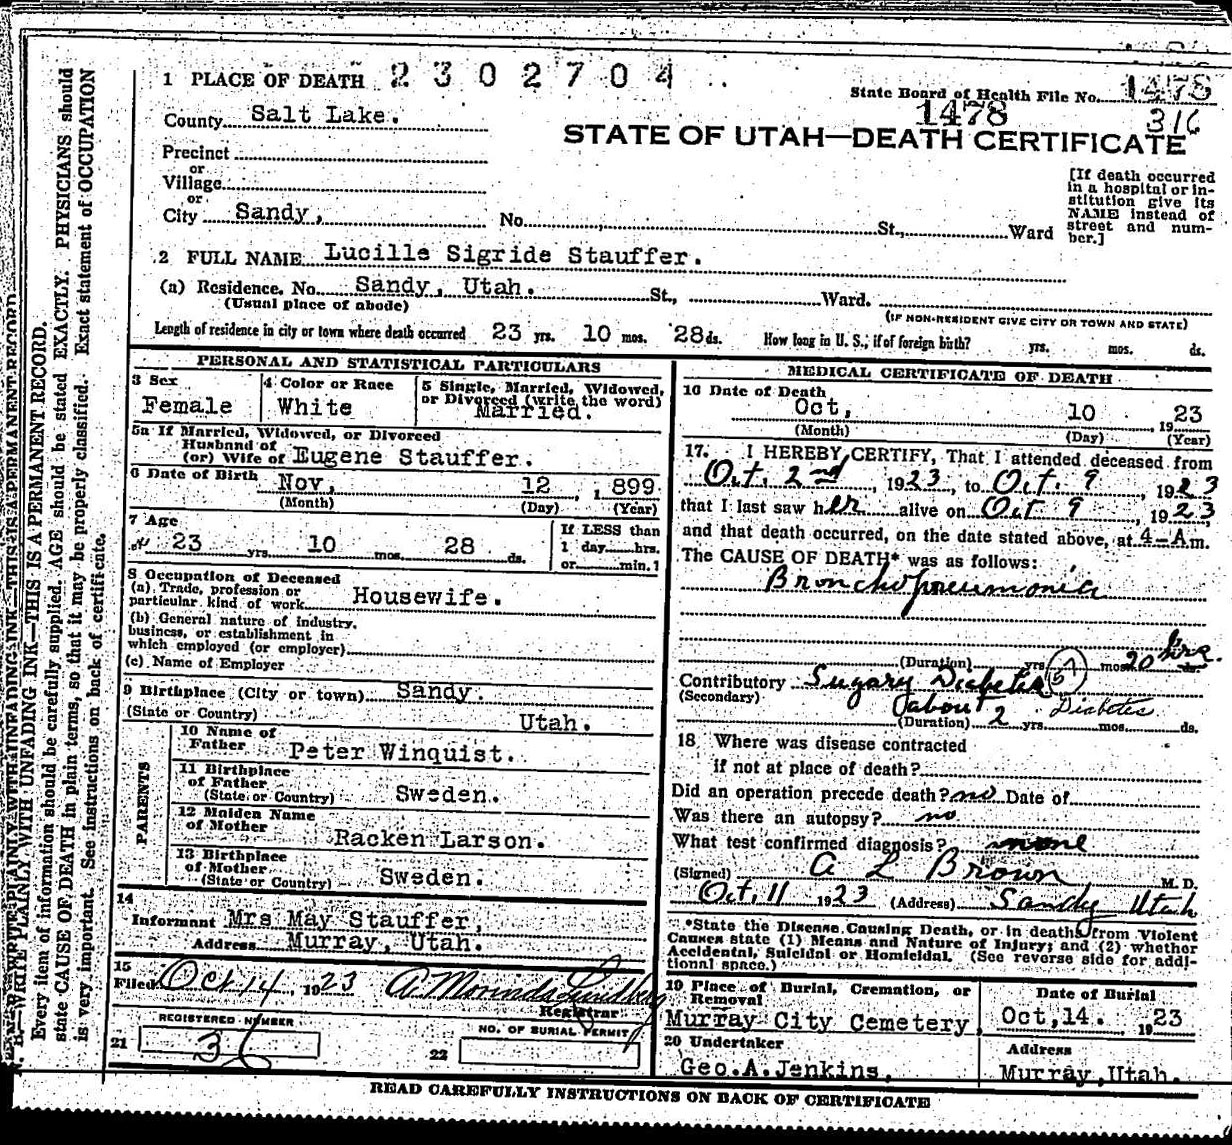 1 PLACE OF DEATH 2302704
State Board of Health File No. 1478
1478 316
County Salt Lake.
STATE OF UTAH—DEATH CERTIFICATE
Precinct
or
Village
or
City Sandy, No. St., Ward
[If death occurred in a hospital or institution give its NAME instead of street and number.]
2 FULL NAME Lucille Sigride Stauffer.
(a) Residence. No. Sandy, Utah. St., Ward.
(Usual place of abode) (IF NON-RESIDENT GIVE CITY OR TOWN AND STATE)
Length of residence in city or town where death occurred 23 yrs. 10 mos. 28 ds. How long in U. S., if of foreign birth? yrs. mos. ds.
PERSONAL AND STATISTICAL PARTICULARS
3 Sex
Female
4 Color or Race
White
5 Single, Married, Widowed,
or Divorced (write the word)
Married.
5a If Married, Widowed, or Divorced
Husband of
(or) Wife of Eugene Stauffer.
6 Date of Birth Nov, 12, 1899
(Month) (Day) (Year)
7 Age
23 yrs. 10 mos. 28 ds.
If LESS than
1 day hrs.
or min.?
8 Occupation of Deceased
(a) Trade, profession or
particular kind of work Housewife.
(b) General nature of industry,
business, or establishment in
which employed (or employer)
(c) Name of Employer
9 Birthplace (City or town) Sandy.
(State or Country) Utah.
PARENTS
10 Name of
Father Peter Winquist.
11 Birthplace
of Father
(State or Country) Sweden.
12 Maiden Name
of Mother Racken Larson.
13 Birthplace
of Mother
(State or Country) Sweden.
14
Informant Mrs May Stauffer,
Address Murray, Utah.
15
Filed Oct 14, 1923
Registrar
REGISTERED NUMBER
21 36
NO. OF BURIAL PERMIT
22
MEDICAL CERTIFICATE OF DEATH
16 Date of Death
Oct, 10 1923
(Month) (Day) (Year)
17. I HEREBY CERTIFY, That I attended deceased from
Oct. 2nd, 1923, to Oct. 9, 1923
that I last saw her alive on Oct 9, 1923,
and that death occurred, on the date stated above, at 4-A m.
The CAUSE OF DEATH* was as follows:
Bronchopneumonia
(Duration) yrs. mos. 20 hrs.
Contributory Sugary Diabetes
(Secondary) about Diabetes
(Duration) 2 yrs. mos. ds.
18 Where was disease contracted
if not at place of death?
Did an operation precede death? no Date of
Was there an autopsy? no
What test confirmed diagnosis? none
(Signed) A L Brown M. D.
Oct. 11 1923 (Address) Sandy Utah
*State the Disease Causing Death, or in deaths from Violent
Causes state (1) Means and Nature of Injury; and (2) whether
Accidental, Suicidal or Homicidal. (See reverse side for addi-
tional space.)
19 Place of Burial, Cremation, or
Removal
Murray City Cemetery
Date of Burial
Oct, 14. 1923
20 Undertaker
Geo. A. Jenkins,
Address
Murray, Utah.
READ CAREFULLY INSTRUCTIONS ON BACK OF CERTIFICATE
N. B.—WRITE PLAINLY WITH UNFADING INK—THIS IS A PERMANENT RECORD.
Every item of information should be carefully supplied. AGE should be stated EXACTLY. PHYSICIANS should
state CAUSE OF DEATH in plain terms, so that it may be properly classified. Exact statement of OCCUPATION
is very important. See instructions on back of certificate.